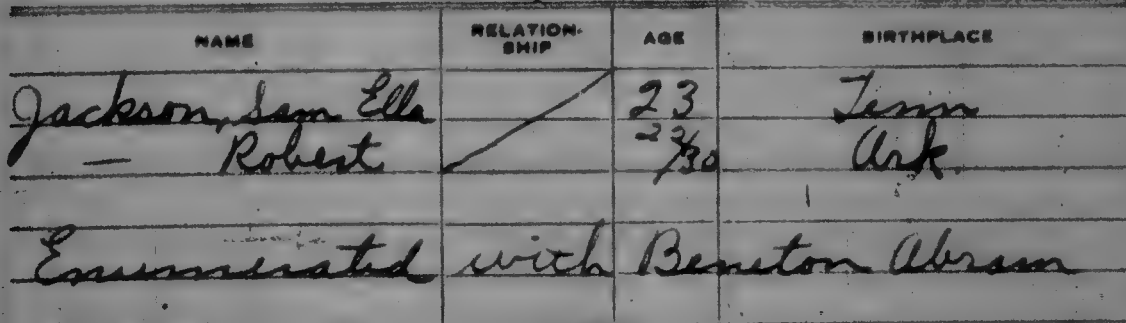 NAME RELATION-SHIP AGE BIRTHPLACE
Jackson, Sam Ella 23 Tenn
— Robert 22/30 Ark
Enumerated with Beneton Abram